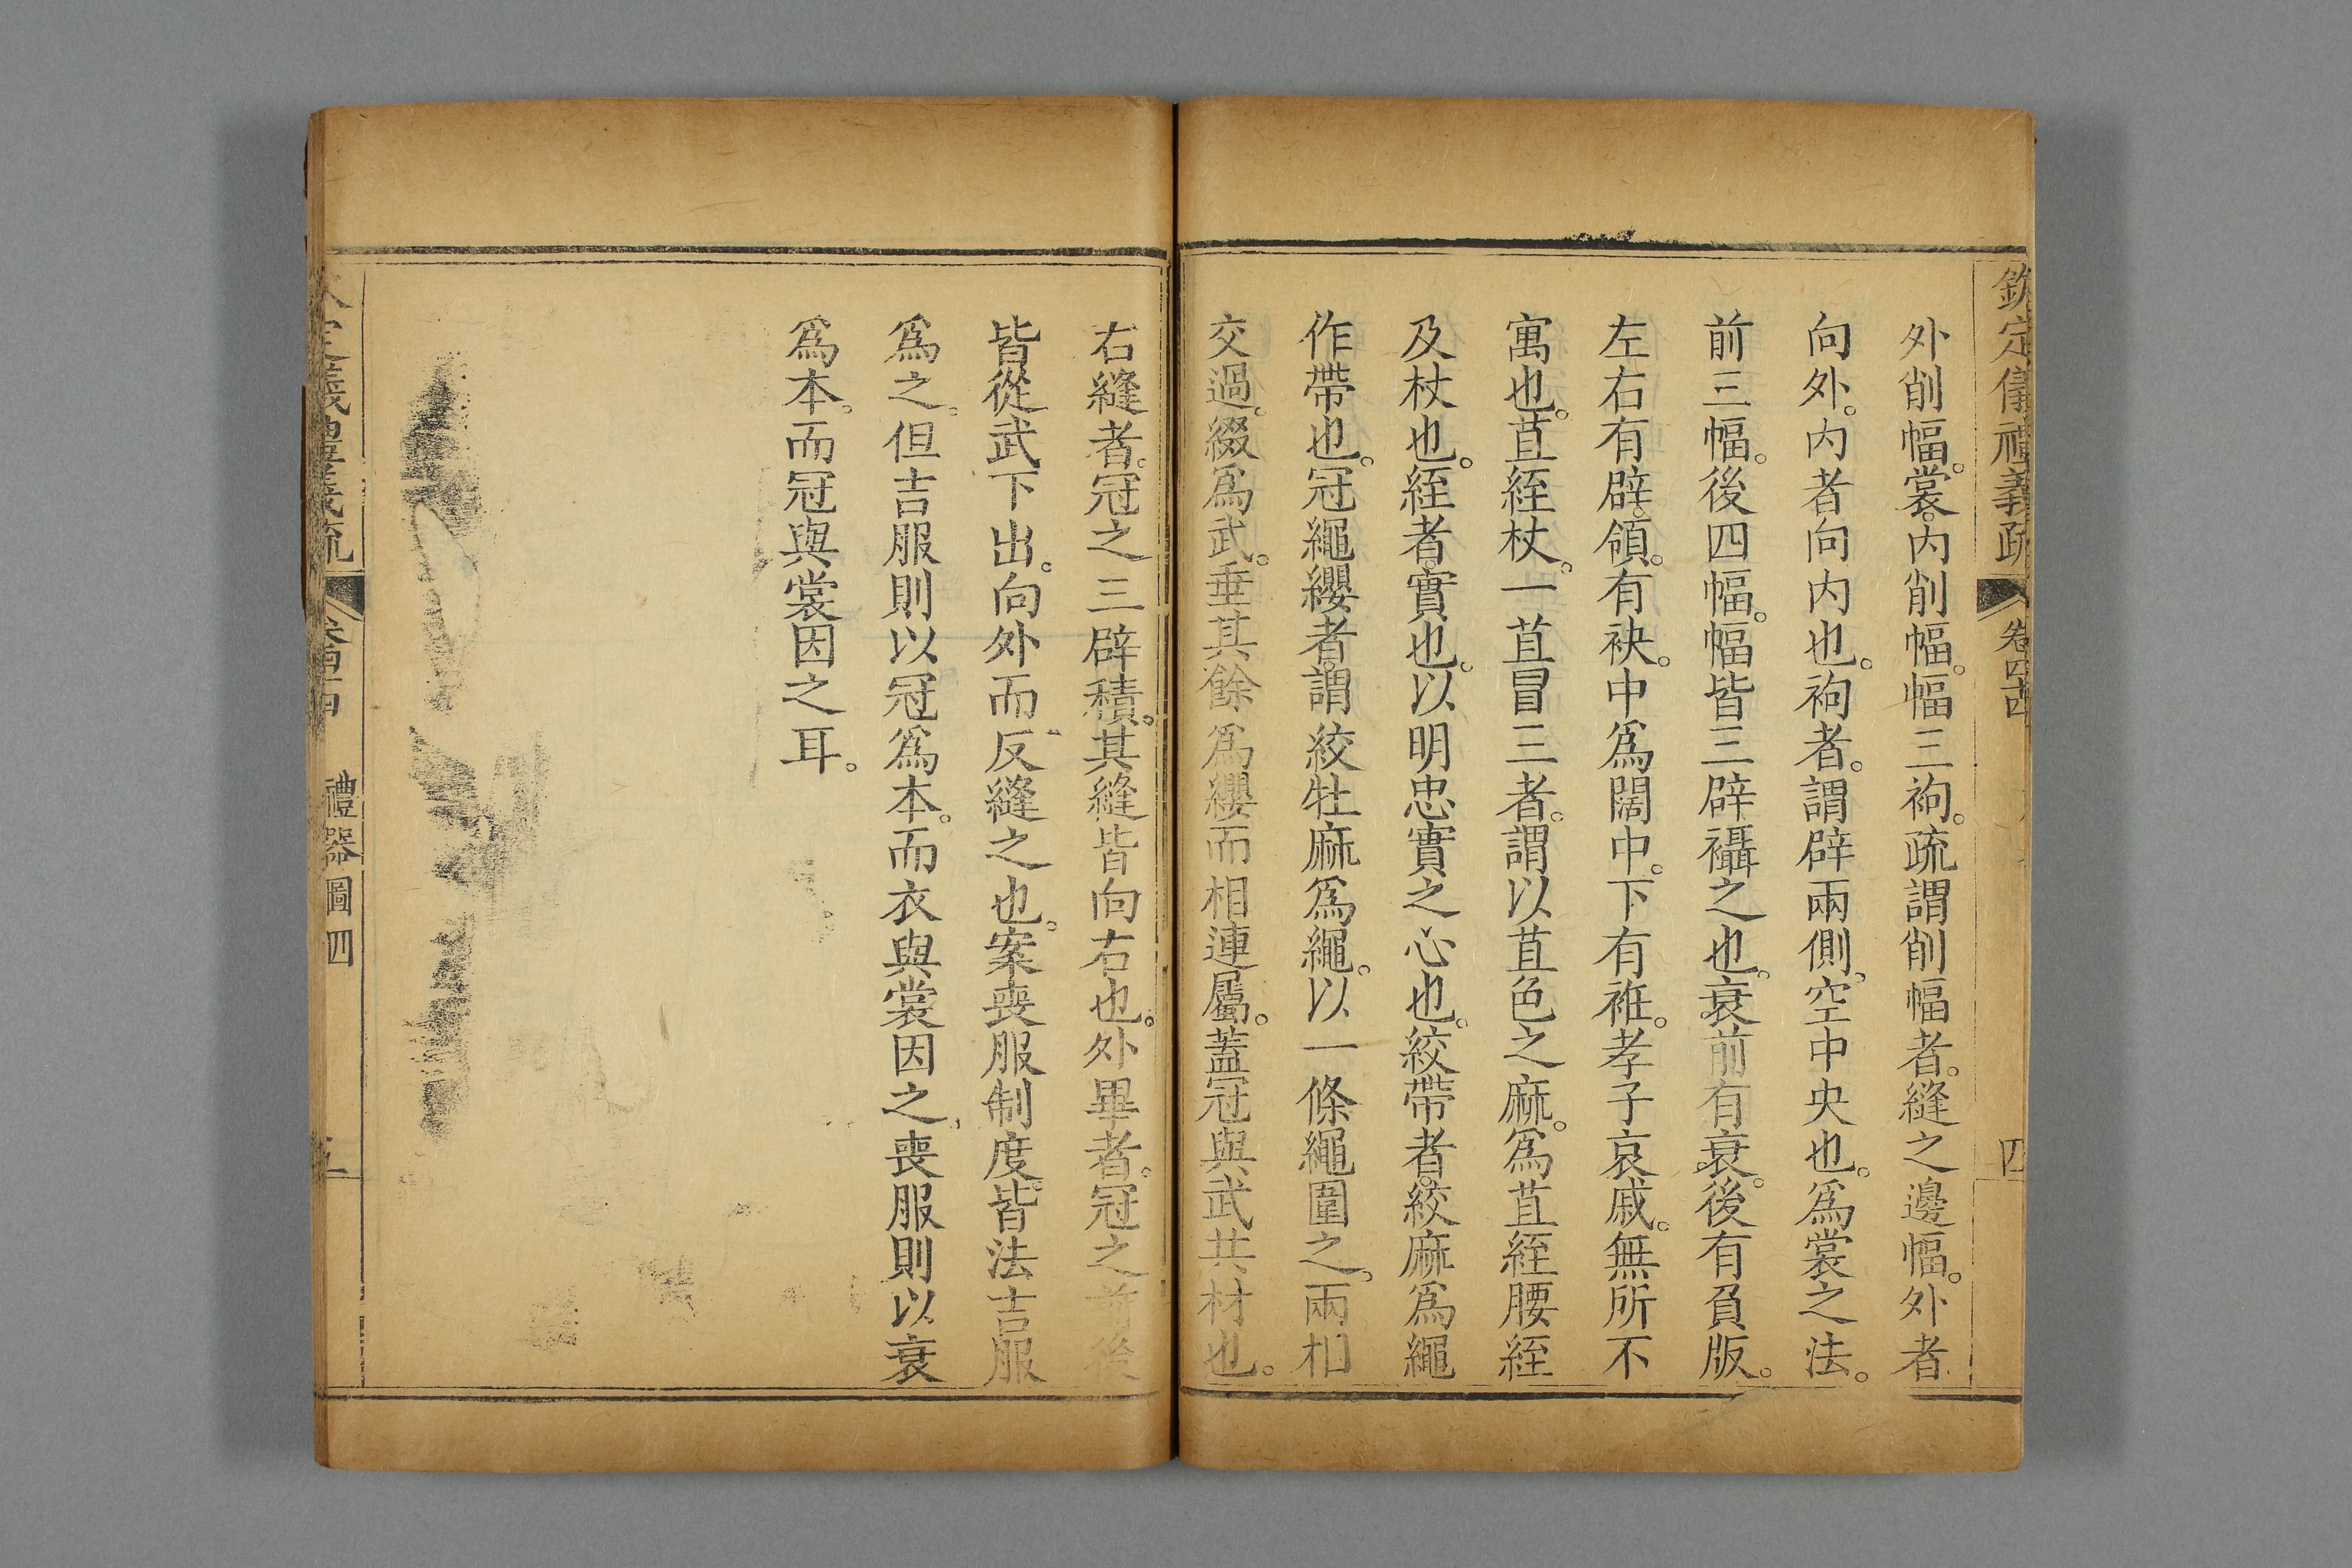 欽定儀禮義疏 卷四十四 四
外削幅。裳。內削幅。幅三袧。疏謂削幅者。縫之邊幅。外者
向外。內者向內也。袧者。謂辟兩側。空中央也。爲裳之法。
前三幅。後四幅。幅皆三辟襵之也。衰前有衰。後有負版。
左右有辟。領。有袂。中爲闊中。下有裧。孝子哀戚。無所不
寓也。苴絰杖。一苴冒三者。謂以苴色之麻。爲苴絰腰絰
及杖也。絰者。實也。以明忠實之心也。絞帶者。絞麻爲繩
作帶也。冠繩纓者。謂絞牡麻爲繩。以一條繩圍之。兩相
交過。綴爲武。垂其餘爲纓而相連屬。蓋冠與武共材也。
右縫者。冠之三辟積。其縫皆向右也。外畢者。冠之前後
皆從武下出。向外而反縫之也。案喪服制度。皆法吉服
爲之。但吉服則以冠爲本。而衣與裳因之。喪服則以衰
爲本。而冠與裳因之耳。
禮器圖四